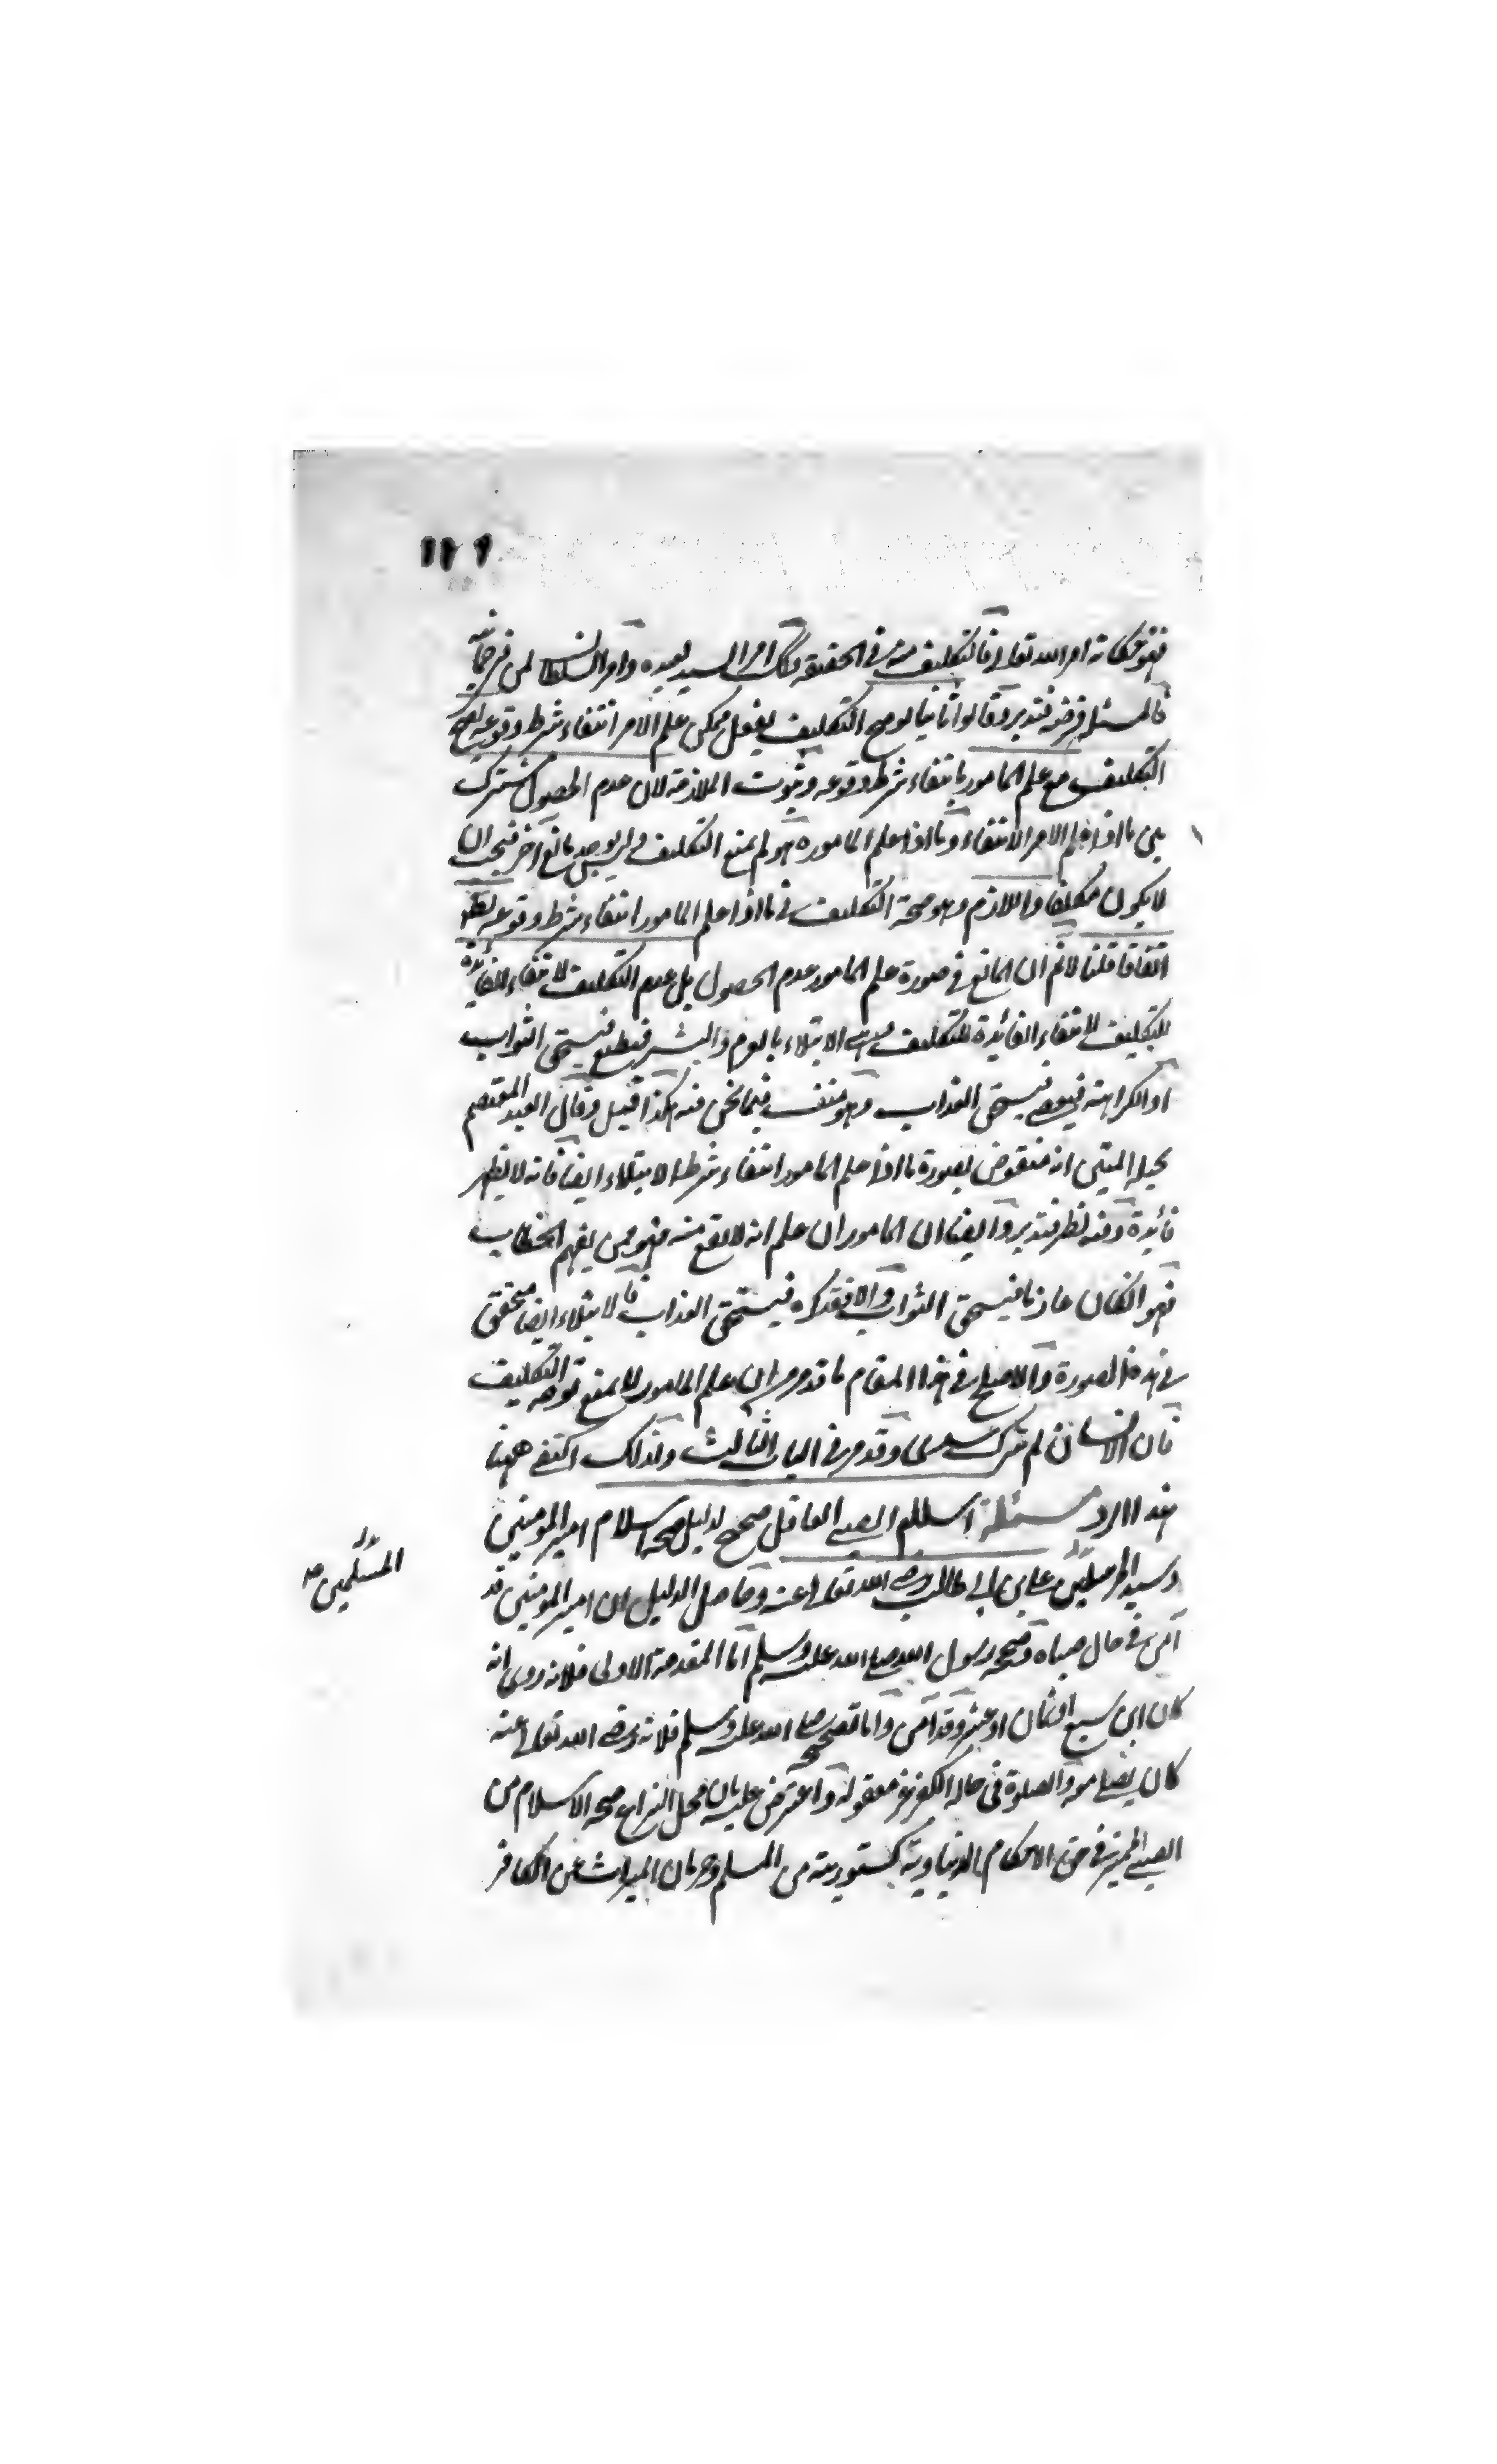 ١٢٦
فهو حكاية امر الله تعالى فالتكليف منه في الحقيقة وكذلك امر السيد لعبده وامر السلطان لمن
فالمسئلة فرضية فتدبر وقالوا ثانيا لو صح التكليف بفعل ممكن علم الامر انتفاء شرط وقوعه لصح
التكليف مع علم المامور بانتفاء شرط وقوعه وثبوت الملازمة لان عدم الحصول مشترك
بين ما اذا علم الامر الانتفاء وما اذا علم المامور فهو لم يمنع التكليف وليس يوجد مانع آخر فيجب ان
لا يكون مكلفا واللازم وهو صحة التكليف في ما اذا علم المامور انتفاء شرط وقوعه
اتفاقا قلنا لا نم ان المانع في صورة علم المامور عدم الحصول بل عدم التكليف لانتفاء الفائدة
للتكليف لانتفاء الفائدة للتكليف الابتلاء بالعزم والبشر فيطيع فيستحق الثواب
او الكراهة فيعصي فيستحق العذاب وهو منتف فيما نحن فيه هكذا قيل وقال العبد المعتصم
بحبله المتين انه منقوض بصورة ما اذا علم المامور انتفاء شرط الابتلاء ايضا فانه لا يظهر
فائدة وفيه نظر فتدبر وايضا ان المامور ان علم انه لا يقع منه فهو ممن يفهم الخطاب
فهو انكان عازما فيستحق الثواب والا فقد كره فيستحق العذاب فالابتلاء ايضا متحقق
في هذه الصورة والاصلح في هذا المقام ما قد مر من ان علم المامور لا يمنع توجه التكليف
فان الانسان لم يترك سدى وقد مر في الباب الثالث ولذلك اكتفى ههنا
بهذا الرد مسئلة اسلام الصبي العاقل صحيح لدليل صحة اسلام امير المومنين
وسيد المرسلين علي بن ابي طالب رضي الله تعالى عنه وحاصل الدليل ان امير المومنين قد
آمن في حال صباه وصححه رسول الله صلى الله عليه وسلم اما المقدمة الاولى فلانه روي انه
كان ابن سبع او ثمان او عشر وقد آمن واما تصحيحه صلى الله عليه وسلم فلانه رضي الله تعالى عنه
كان يصلي معه والصلوة في حالة الكفر غير معقولة واعترض عليه بان محل النزاع صحة الاسلام من
الصبي المميز في حق الاحكام الدنياوية كتوريثه من المسلم وحرمان الميراث عن الكافر
المسلمين صح